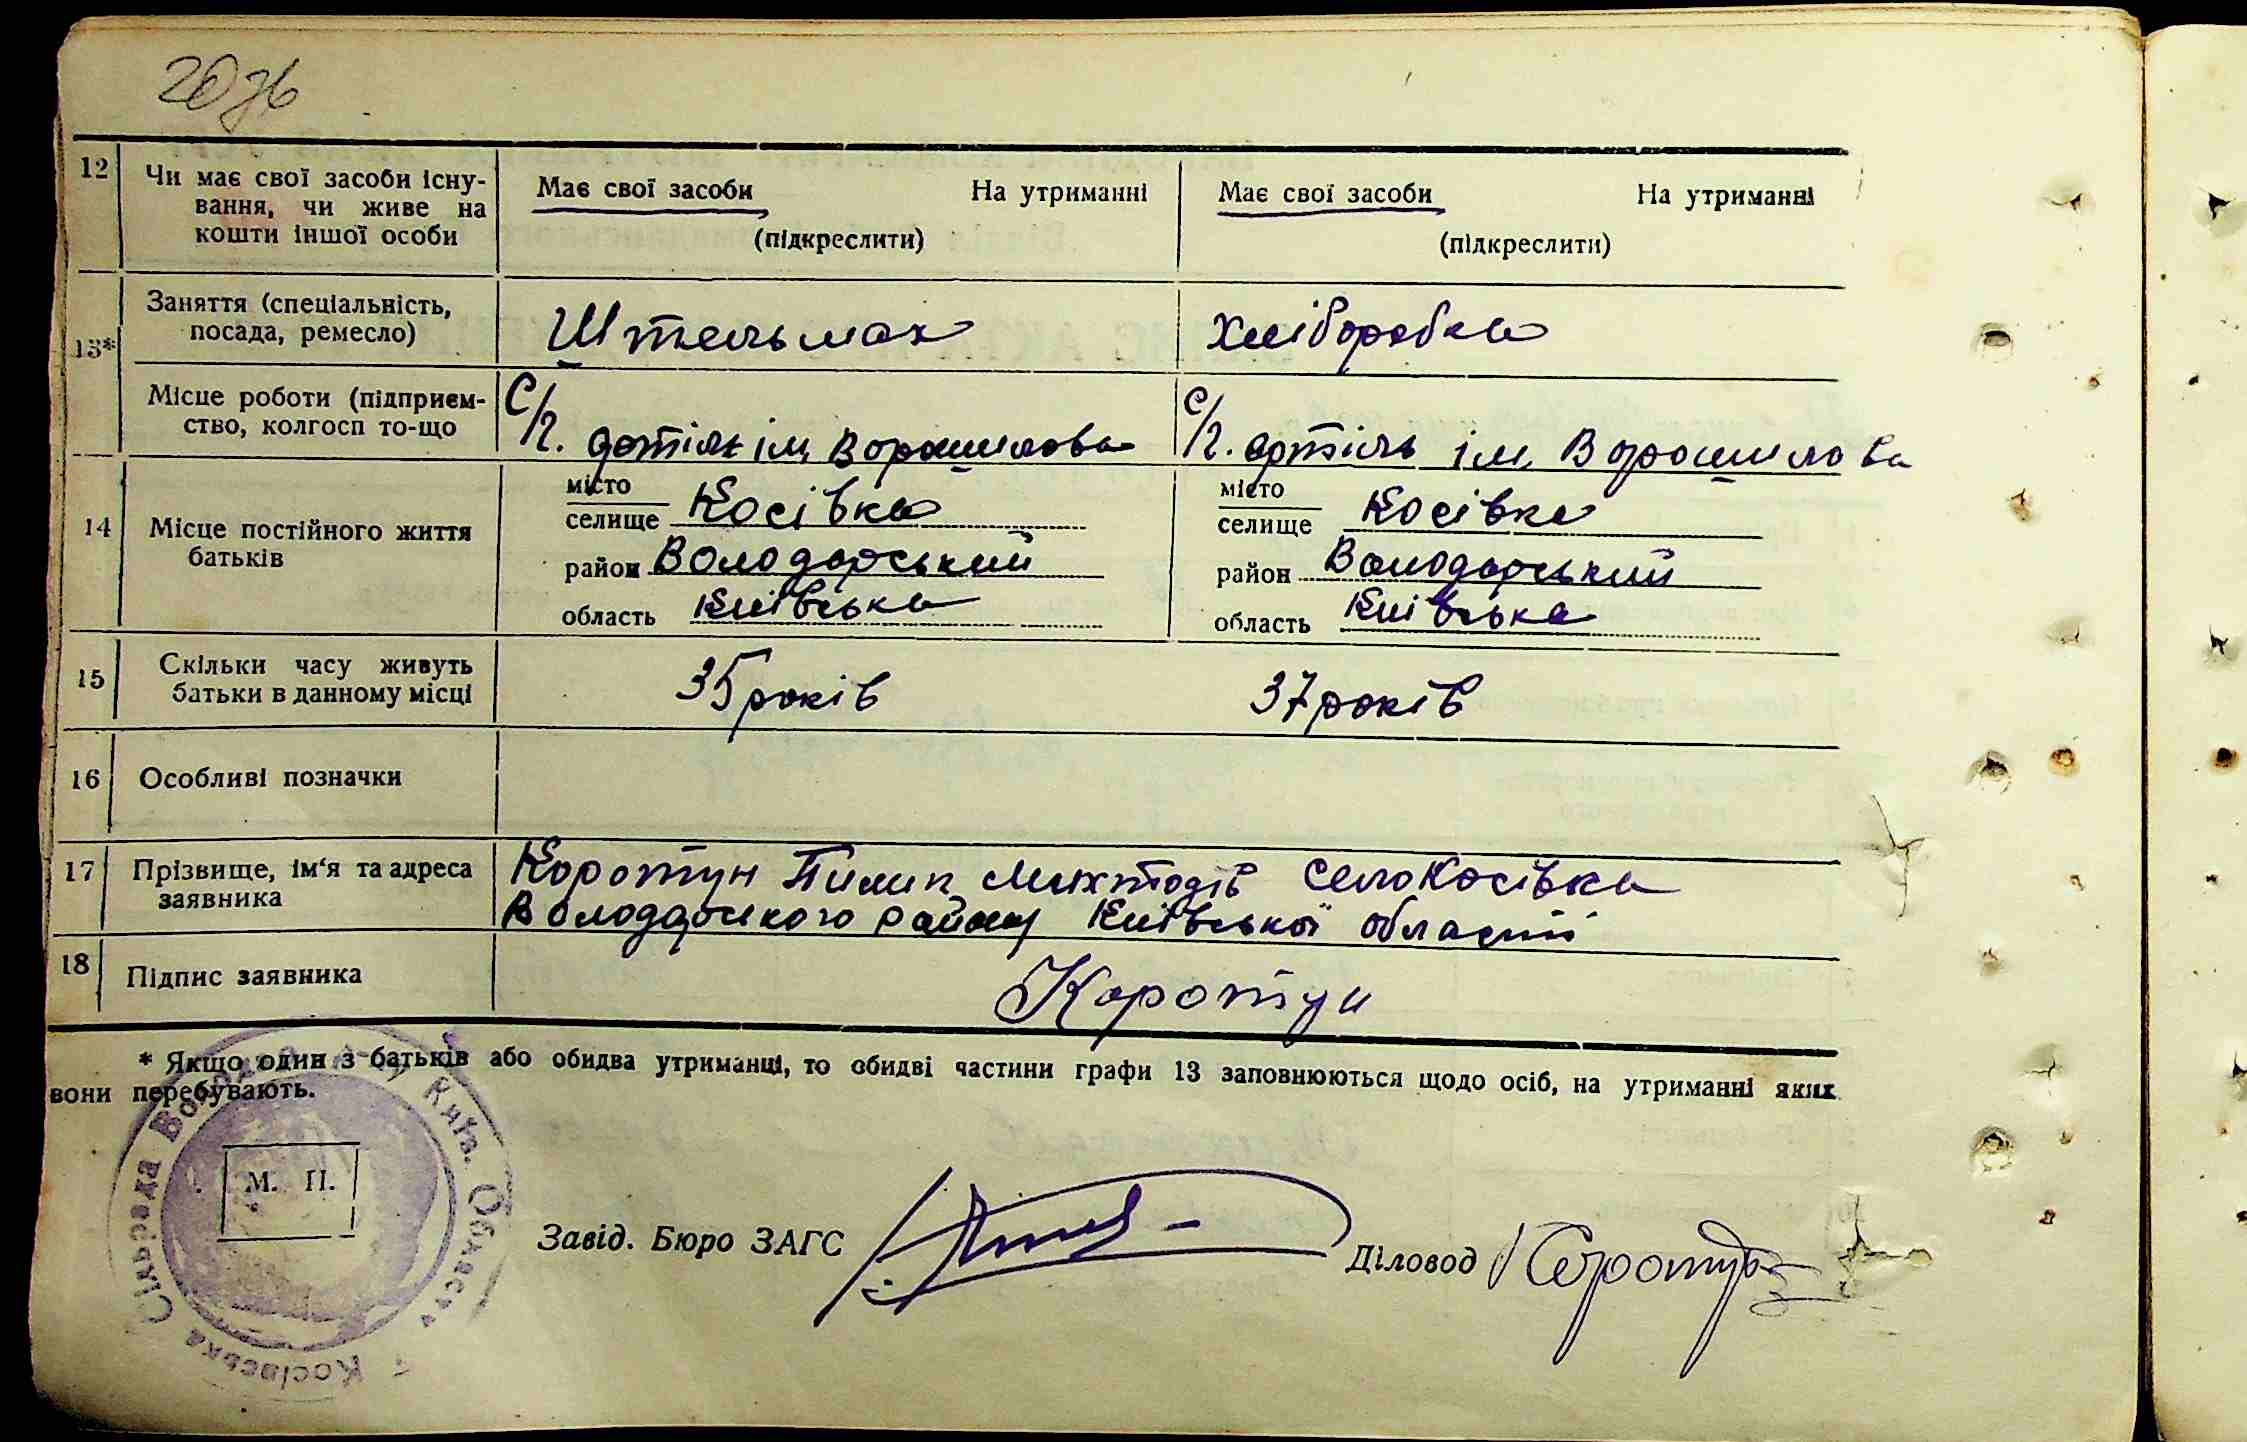 20зв
12
Чи має свої засоби існу-
вання, чи живе на
кошти іншої особи
Має свої засоби На утриманні
(підкреслити)
Має свої засоби На утриманні
(підкреслити)
13*
Заняття (спеціальність,
посада, ремесло)
Штельмах
Хліборобка
Місце роботи (підприєм-
ство, колгосп то-що
С/г. артіль ім. Ворошилова
С/г. артіль ім. Ворошилова
14
Місце постійного життя
батьків
місто
селище Косівка
район Володарський
область Київська
місто
селище Косівка
район Володарський
область Київська
15
Скільки часу живуть
батьки в данному місці
35 років
37 років
16
Особливі позначки
17
Прізвище, ім'я та адреса
заявника
Коротун Пилип село Косівка
Володарського району Київської області
18
Підпис заявника
Коротун
* Якщо один з батьків або обидва утриманці, то обидві частини графи 13 заповнюються щодо осіб, на утриманні яких
вони перебувають.
М. П.
Косівська Сільрада Київ. Область
Завід. Бюро ЗАГС
Діловод Коротун